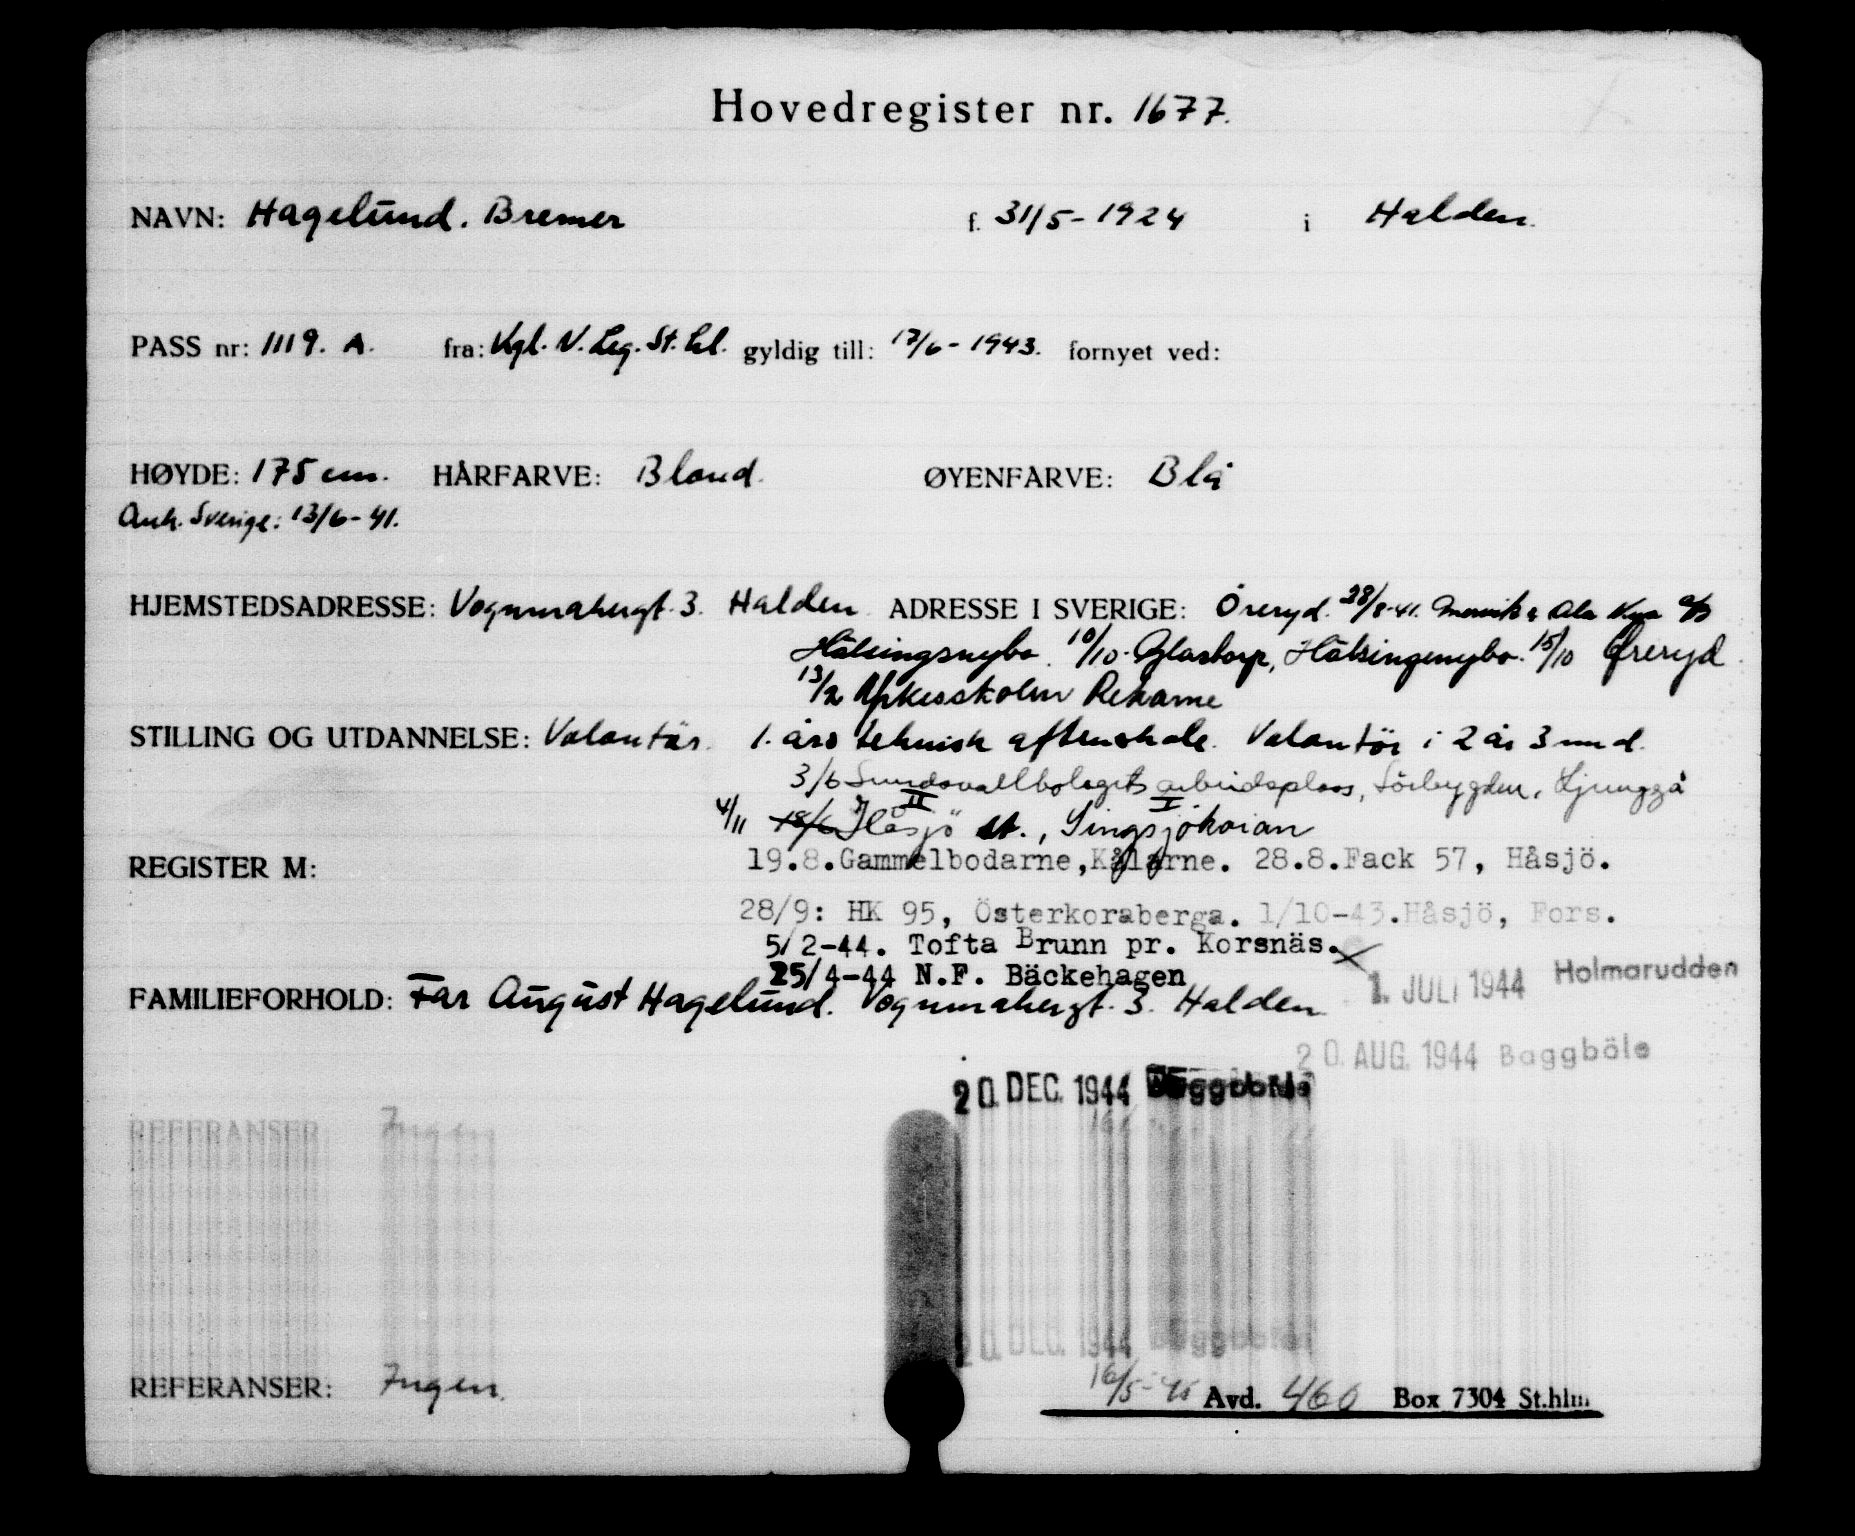 Hovedregister nr. 1677.
NAVN: Hagelund. Bremer f. 31/5-1924 i Halden.
PASS nr: 1119. A. fra: Kgl. N. Leg. St.hl. gyldig till: 17/6-1943. fornyet ved:
HØYDE: 175 cm. HÅRFARVE: Blond. ØYENFARVE: Blå
Ank. Sverige: 13/6-41.
HJEMSTEDSADRESSE: Vognmakergt. 3. Halden ADRESSE I SVERIGE: Öreryd. 28/8-41.
Hälsingsnybo. 10/10. Glastorp, Hälsingenybo. 15/10 Öreryd.
13/2 Yrkesskolen Rekarne
STILLING OG UTDANNELSE: Volontör. 1. års teknisk aftenskole. Volontör i 2 år 3 mnd.
3/6 Sundsvallbolagets arbeidsplass, Sörbygden, Ljunggå
4/11 18/6 Håsjö II st., Singsjökoian I
REGISTER M: 19.8.Gammelbodarne,Kälarne. 28.8.Fack 57, Håsjö.
28/9: HK 95, Österkoraberga. 1/10-43.Håsjö, Fors.
5/2-44. Tofta Brunn pr. Korsnäs.
25/4-44 N.F. Bäckehagen
1. JULI 1944 Holmarudden
FAMILIEFORHOLD: Far August Hagelund. Vognmakergt. 3. Halden
20. AUG. 1944 Baggböle
20. DEC. 1944 Baggböle
REFERANSER: Ingen
20. DEC. 1944 Baggböle
REFERANSER: Ingen. 16/5-45 Avd. 460 Box 7304 St.hlm